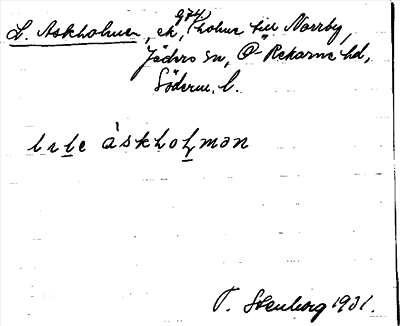 L. Askholmen, ek. 974, holme till Norrby,
Jäders sn, Ö-Rekarne hd,
Söderm. l.
lɩle áskhoḷmən
T. Stenborg 1931.